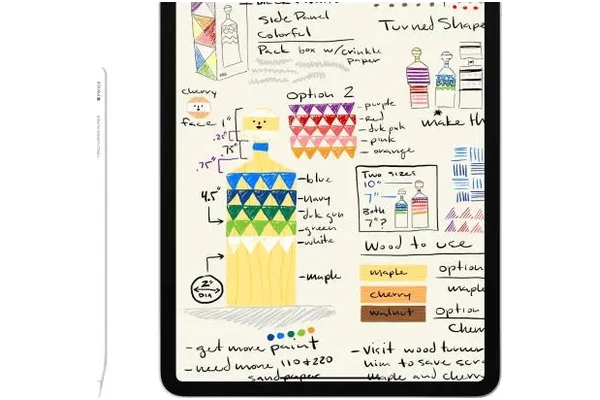 Side Panel
Colorful
Pack box w/crinkle
paper
Turned Shape
cherry
face
1"
.25"
.75"
.75"
4.5"
2"
DIA
Option 2
purple
red
drk pnk
pink
orange
blue
navy
drk grn
green
white
maple
make th
Two sizes
10"
7"
Both
7"?
Wood to use
maple
cherry
walnut
option
maple
Option
Cherr
- get more paint
- need more 110 + 220
sandpaper
- Visit wood turner
him to save scr
maple and cherry